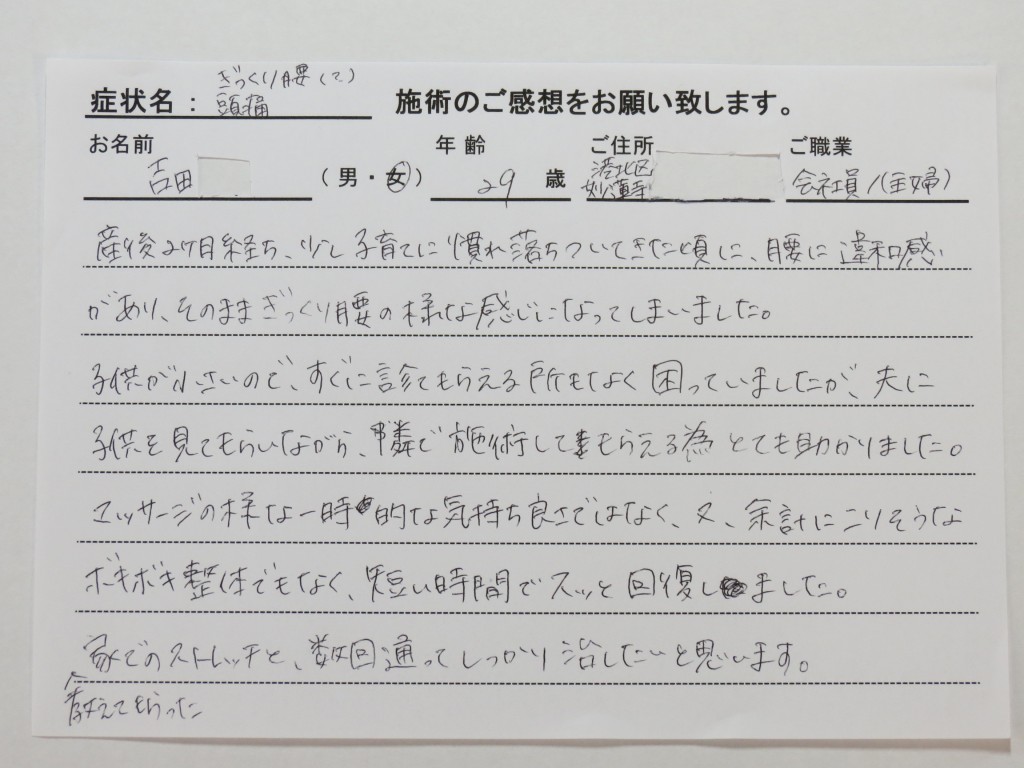 ぎっくり腰(?)
症状名： 頭痛 施術のご感想をお願い致します。
お名前 年齢 ご住所 ご職業
吉田 (男・女) 29 歳 港北区 妙蓮寺 会社員/(主婦)
産後2ヶ月経ち、少し子育てに慣れ落ちついてきた頃に、腰に違和感
があり、そのままぎっくり腰の様な感じになってしまいました。
子供が小さいので、すぐに診てもらえる所もなく困っていましたが、夫に
子供を見てもらいながら、隣で施術してもらえる為とても助かりました。
マッサージの様な一時的な気持ち良さではなく、又、余計にこりそうな
ボキボキ整体でもなく、短い時間でスッと回復しました。
家でのストレッチと、数回通ってしっかり治したいと思います。
教えてもらった